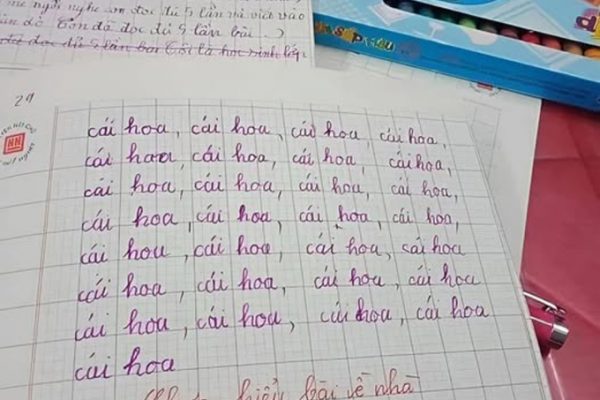 ngồi nghe đọc đủ 5 lần và viết vào
đọc đủ 5 lần bài
29
cái hoa, cái hoa, cái hoa, cái hoa,
cái hoa, cái hoa, cái hoa, cái hoa,
cái hoa, cái hoa, cái hoa, cái hoa,
cái hoa, cái hoa, cái hoa, cái hoa,
cái hoa, cái hoa, cái hoa, cái hoa
cái hoa, cái hoa, cái hoa, cái hoa
cái hoa, cái hoa, cái hoa, cái hoa
cái hoa
hiểu bài về nhà